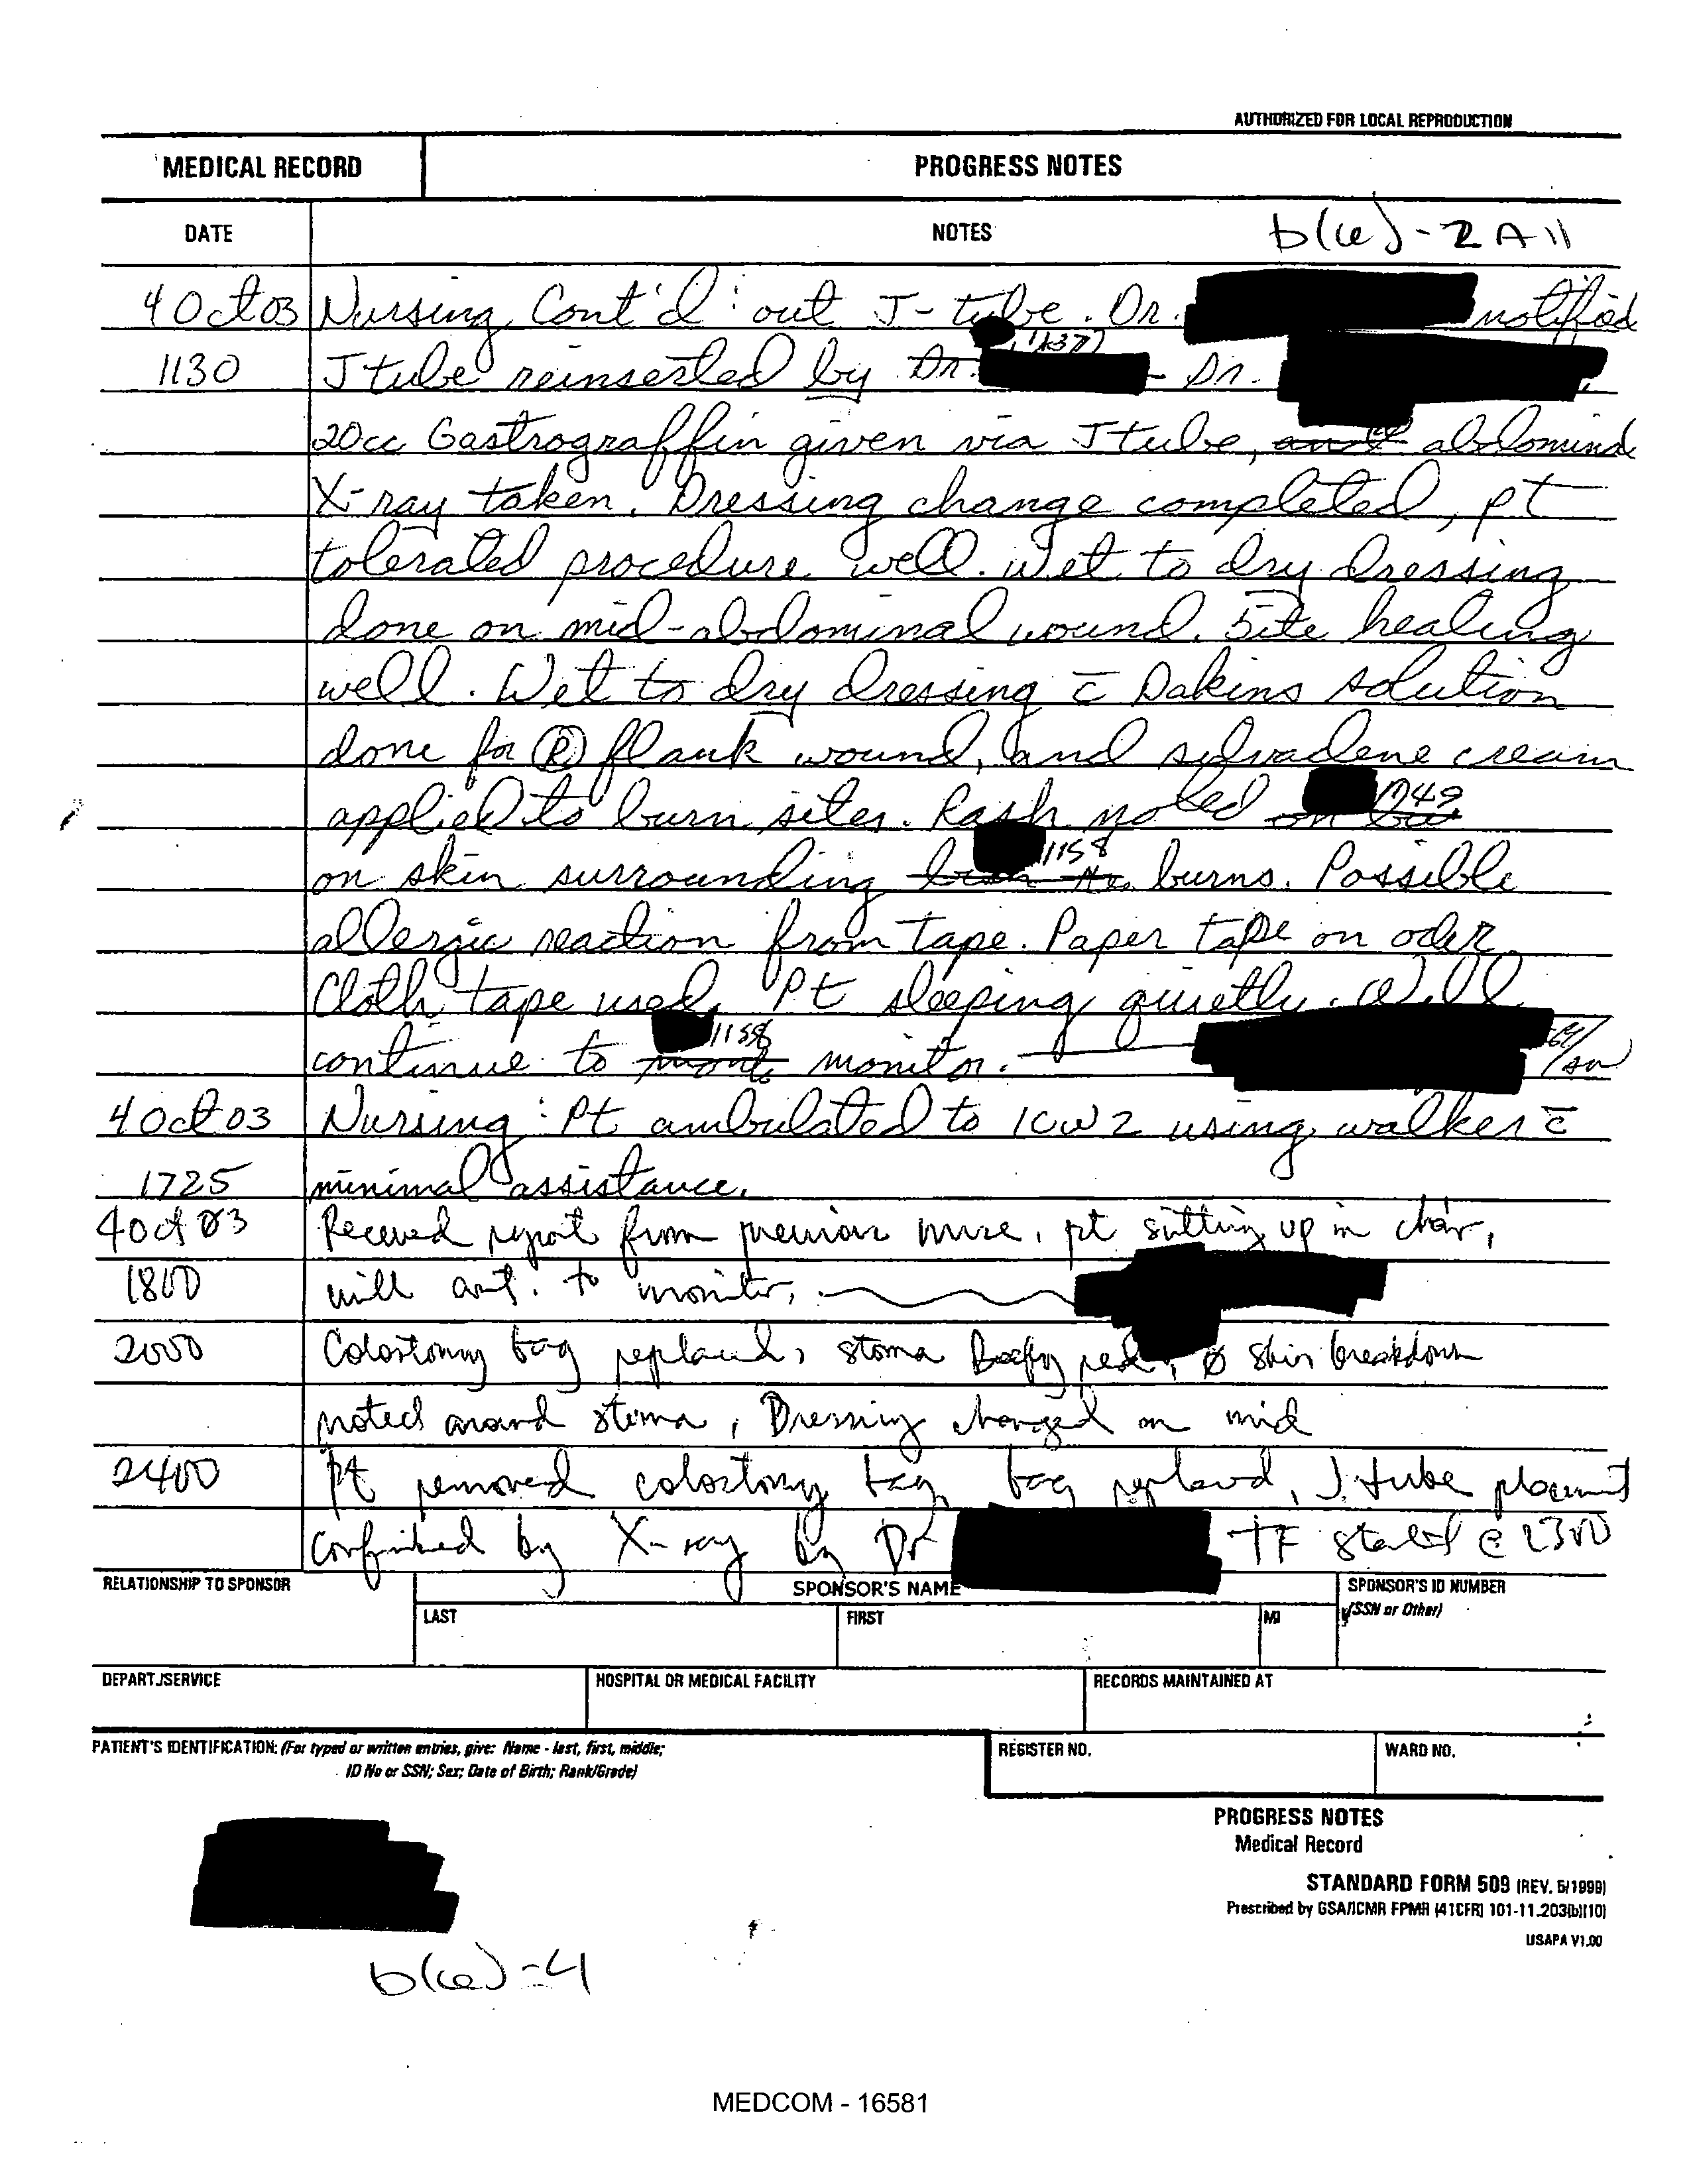 AUTHORIZED FOR LOCAL REPRODUCTION
MEDICAL RECORD PROGRESS NOTES
DATE NOTES b(6)-2 All
4 Oct 03 Nursing Cont'd: out J-tube. Dr. notified
1130 J tube reinserted by Dr. Dr.
20cc Gastrograffin given via J tube, abdominal
X-ray taken. Dressing change completed, pt
tolerated procedure well. Wet to dry dressing
done on mid-abdominal wound. Site healing
well. Wet to dry dressing c̄ Dakins solution
done for Ⓡ flank wound, and silvadene cream
applied to burn sites. Rash noted on
on skin surrounding 1158 burns. Possible
allergic reaction from tape. Paper tape on
Cloth tape used. Pt sleeping quietly. Will
continue to 1158 monitor.
4 Oct 03 Nursing: Pt ambulated to ICW 2 using walker c̄
1725 minimal assistance.
4 Oct 03 Received report from previous nurse, pt sitting up in chair,
1800 will cont. to monitor,
2000 Colostomy bag replaced, stoma Beefy red, Ø skin breakdown
noted around stoma, Dressing changed on mid
2400 Pt removed colostomy bag, bag replaced, J. tube placement
confirmed by X-ray by Dr TF started @ 2300
RELATIONSHIP TO SPONSOR SPONSOR'S NAME SPONSOR'S ID NUMBER
LAST FIRST MI (SSN or Other)
DEPART./SERVICE HOSPITAL OR MEDICAL FACILITY RECORDS MAINTAINED AT
PATIENT'S IDENTIFICATION: (For typed or written entries, give: Name - last, first, middle; REGISTER NO. WARD NO.
ID No or SSN; Sex; Date of Birth; Rank/Grade)
PROGRESS NOTES
Medical Record
STANDARD FORM 509 (REV. 5/1999)
Prescribed by GSA/ICMR FPMR (41CFR) 101-11.203(b)(10)
USAPA V1.00
b(6)-4
MEDCOM - 16581